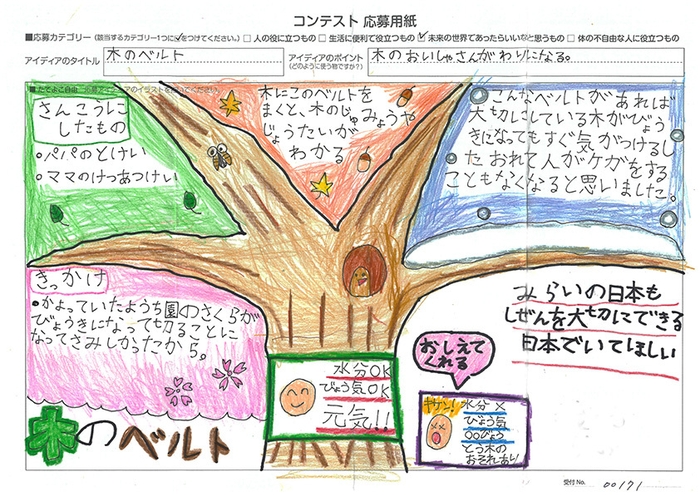 コンテスト 応募用紙
■応募カテゴリー（該当するカテゴリー1つに✓をつけてください。）□ 人の役に立つもの □ 生活に便利で役立つもの ☑ 未来の世界であったらいいなと思うもの □ 体の不自由な人に役立つもの
アイディアのタイトル
木のベルト
アイディアのポイント
（どのように使う物ですか？）
木のおいしゃさんがわりになる。
さんこうに
したもの
・パパのとけい
・ママのけつあつけい
木にこのベルトを
まくと、木のじゅみょうや
じょうたいが
わかる
こんなベルトがあれば
大切にしている木がびょう
きになってもすぐ気がつけるし
たおれて人がケガをする
こともなくなると思いました。
きっかけ
・かよっていたようち園のさくらが
びょうきになって切ることに
なってさみしかったから。
みらいの日本も
しぜんを大切にできる
日本でいてほしい
おしえて
くれる
水分OK
びょう気OK
元気!!
キケン!
水分 ×
びょう気
○○びょう
とう木の
おそれあり!
木のベルト
受付 No.
00171